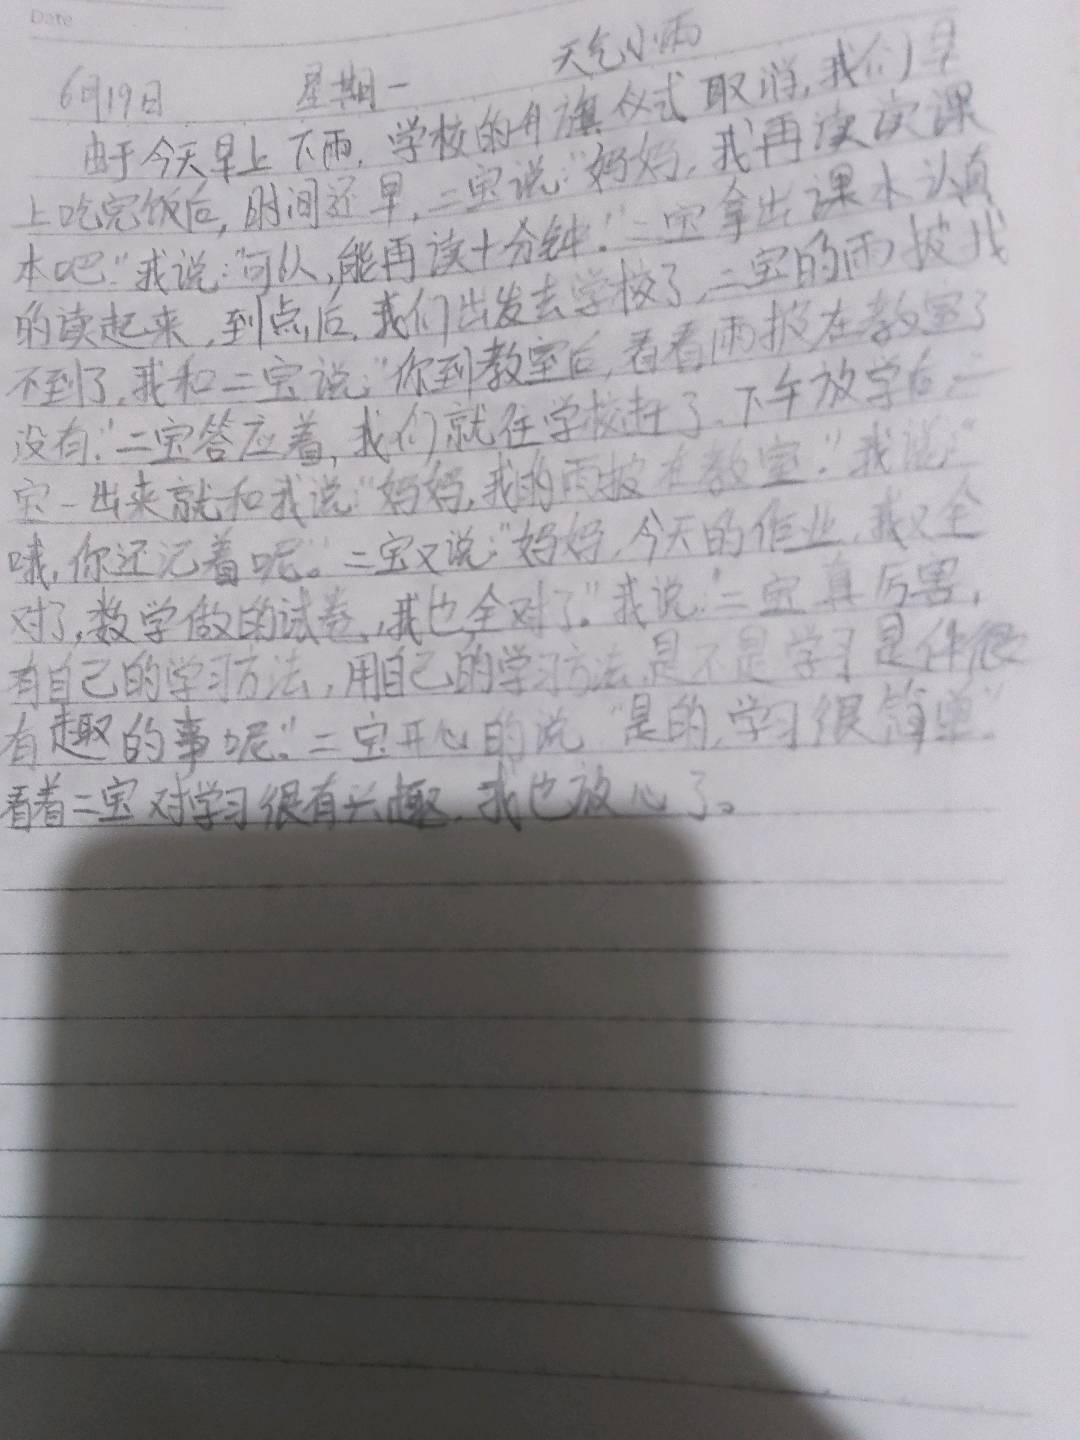 Date
6月19日 星期一 天气小雨
由于今天早上下雨,学校的升旗仪式取消,我们早
上吃完饭后,时间还早,二宝说:"妈妈,我再读读课
本吧."我说:"可以,能再读十分钟."二宝拿出课本认真
的读起来,到点后,我们出发去学校了,二宝的雨披找
不到了,我和二宝说:"你到教室后,看看雨披在教室了
没有."二宝答应着,我们就往学校赶了,下午放学后,二
宝一出来就和我说:"妈妈,我的雨披在教室."我说:"
哦,你还记着呢。"二宝又说:"妈妈,今天的作业,我又全
对了,数学做的试卷,我也全对了."我说:"二宝真厉害,
有自己的学习方法,用自己的学习方法,是不是学习是件很
有趣的事呢."二宝开心的说"是的,学习很简单."
看着二宝对学习很有兴趣,我也放心了。